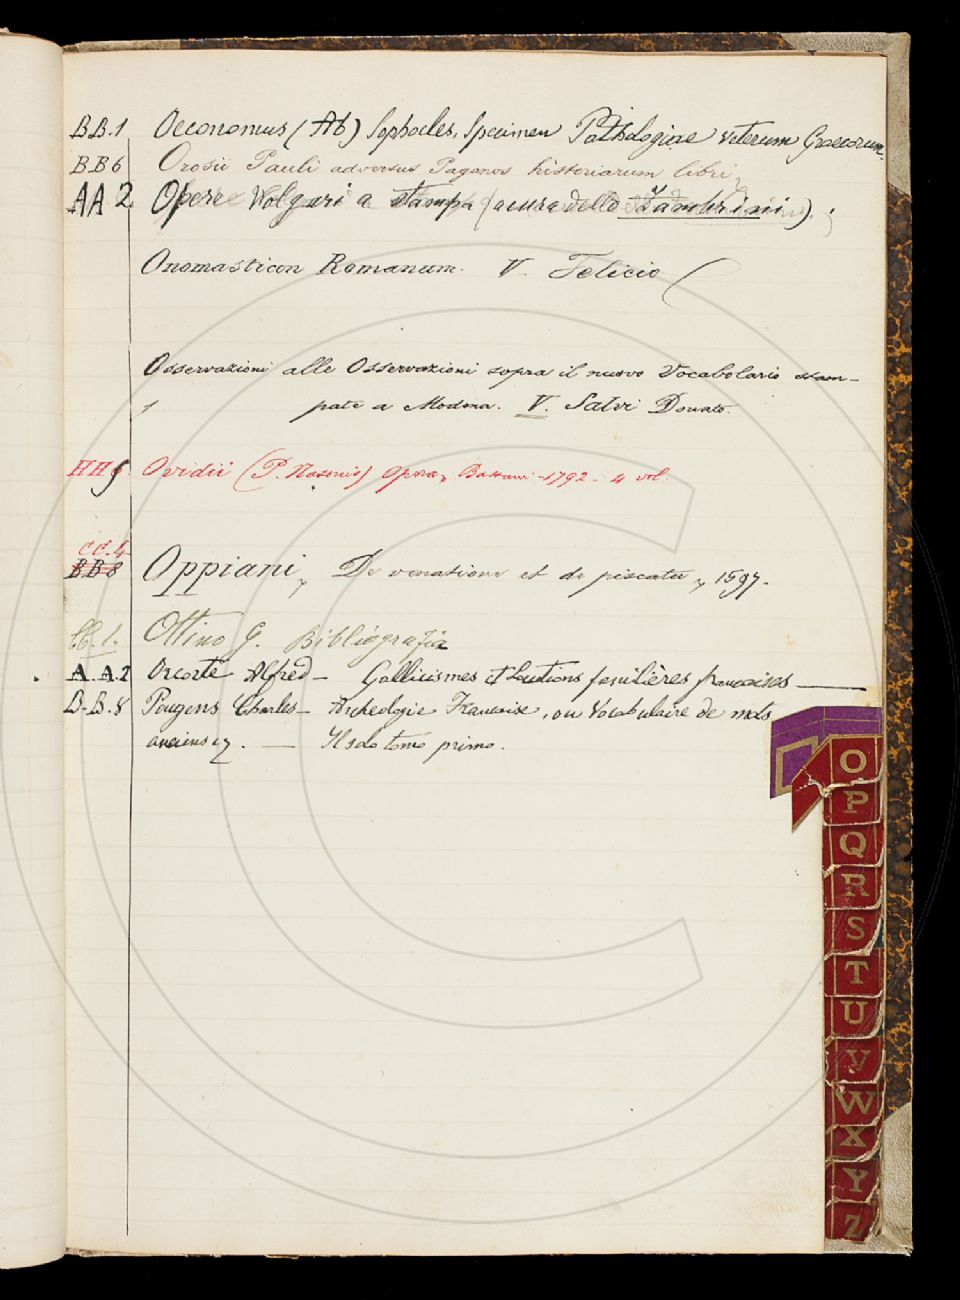 BB.1 Oeconomus (Ab) Sophocles, Specimen Pathologiae veterum Graecorum
BB6 Orosii Pauli adversus Paganos historiarum libri
AA2 Opere Volgari a Stampa (a cura dello Zambrini).
Onomasticon Romanum. V. Felicio (
Osservazioni alle Osservazioni sopra il nuovo Vocabolario stam-
pate a Modena. V. Salvi Donato.
HH 9. Ovidii (P. Nasonis) Opera, Bassani - 1792 - 4 vol.
CC.4
BB8 Oppiani, De venatione et de piscatu, 1597.
CC.1. Ottino G. Bibliografia
A.A.2 Orcorte Alfred - Gallicismes et Locutions familières françaises
B.B.8 Pougens Charles - Archeologie Francaise, ou Vocabulaire de mots
anciens. — Il solo tomo primo.
O
P
Q
R
S
T
U
V
W
X
Y
Z
C